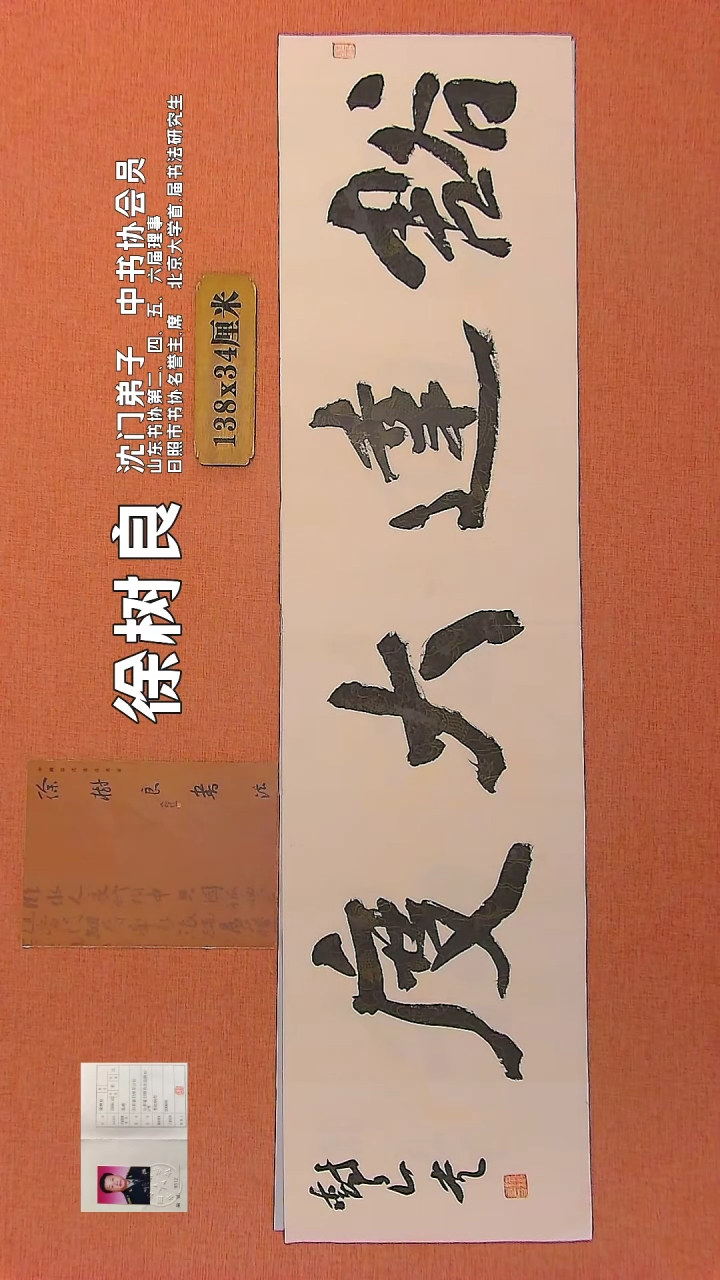 豁達大度
徐树良
沈门弟子 中书协会员
山东书协第二、四、五、六届理事
日照市书协名誉主席 北京大学首届书法研究生
138x34厘米
徐樹良書法